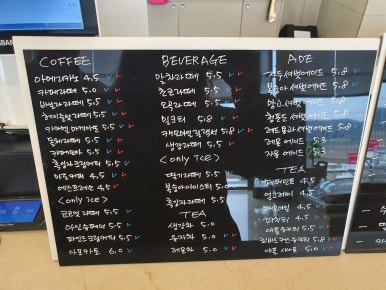 COFFEE
아메리카노 4.5
카페라떼 5.0
바닐라라떼 5.5
헤이즐넛라떼 5.5
카라멜 마끼아또 5.5
돌체라떼 5.5
카페모카 5.5
흑임자크림커피 5.5
더치커피 4.5
에스프레소 4.5
<only ICE>
코코넛라떼 5.5
아인슈페너 5.5
피넛크림커피 5.5
아포카토 6.0
BEVERAGE
말차라떼 5.5
초코라떼 5.5
고구마라떼 5.5
밀크티 5.8
생강라떼 5.5
<only ICE>
딸기라떼 5.5
복숭아아이스티 5.0
흑임자라떼 5.5
TEA
생강차 5.0
유자차 5.0
레몬차 5.0
ADE
자두셔벗에이드 5.8
복숭아셔벗에이드 5.8
망고셔벗에이드 5.8
청포도셔벗에이드 5.8
레몬셔벗에이드 5.8
레몬에이드 5.3
자몽에이드
TEA
페퍼민트 4.5
얼그레이 4.5
캐모마일 4.5
루이보스 5.5
5.8
5.0